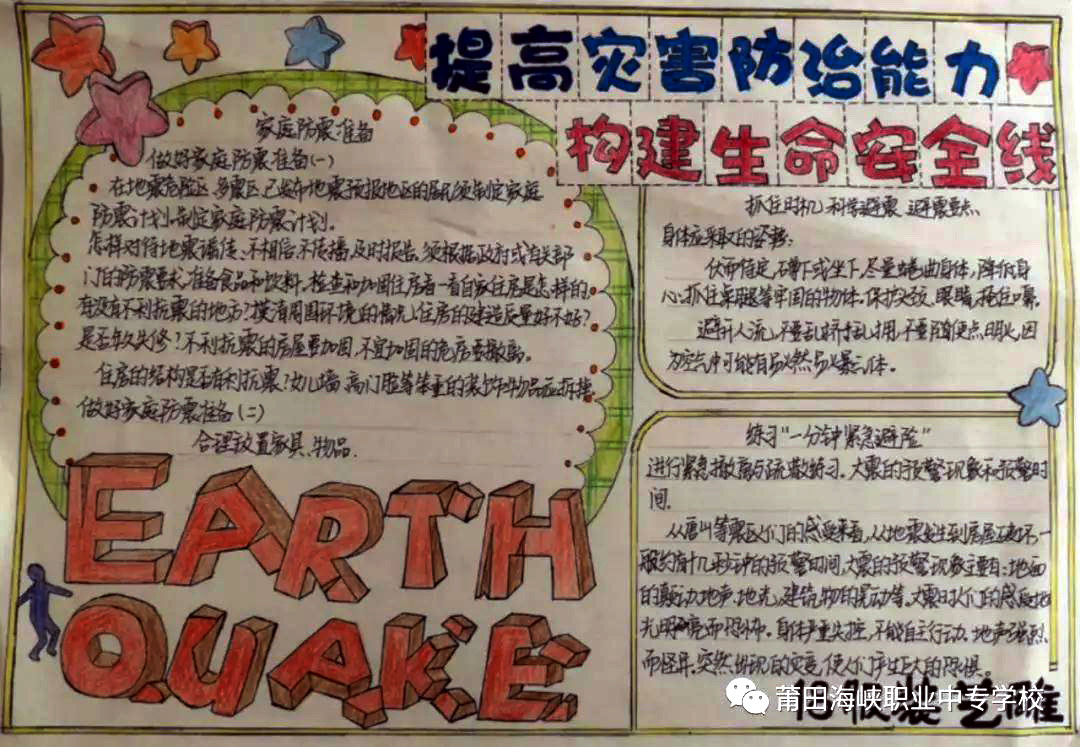 提高灾害防治能力
构建生命安全线
家庭防震准备
做好家庭防震准备(一)
在地震危险区、多震区、已发布地震预报地区的居民须制定家庭
防震计划。制定家庭防震计划。
怎样对待地震谣传、不相信、不传播、及时报告、须根据政府或有关部
门的防震要求、准备食品和饮料、检查和加固住房看一看自家住房是怎样的、
有没有不利抗震的地方?摸清周围环境的情况、住房的建造质量好不好?
是否年久失修?不利抗震的房屋要加固、不宜加固的危房要撤离。
住房的结构是否有利抗震?女儿墙、高门脸等笨重的装饰物品应拆掉
做好家庭防震准备(二)
合理放置家具、物品.
EARTH
QUAKE
抓住时机 科学避震 避震要点
身体应采取的姿势:
伏而待定,蹲下或坐下,尽量蜷曲身体,降低身
心,抓住桌腿等牢固的物体。保护头颈、眼睛,掩住口鼻。
避开人流,不要乱挤乱拥,不要随便点明火,因
为空气中可能有易燃易爆气体。
练习"一分钟紧急避险"
进行紧急撤离与疏散练习。大震的预警现象和预警时
间。
从唐山等震区人们的感受来看,从地震发生到房屋破坏一
般约有十几秒钟的预警时间,大震的预警现象主要有:地面
的颤动、地声、地光、建筑物的晃动等。大震时人们的感觉地
光明亮而恐怖。身体严重失控,不能自主行动、地声强烈
而怪异。突然出现的灾变,使人们产生巨大的恐惧。
莆田海峡职业中专学校
服装艺雕